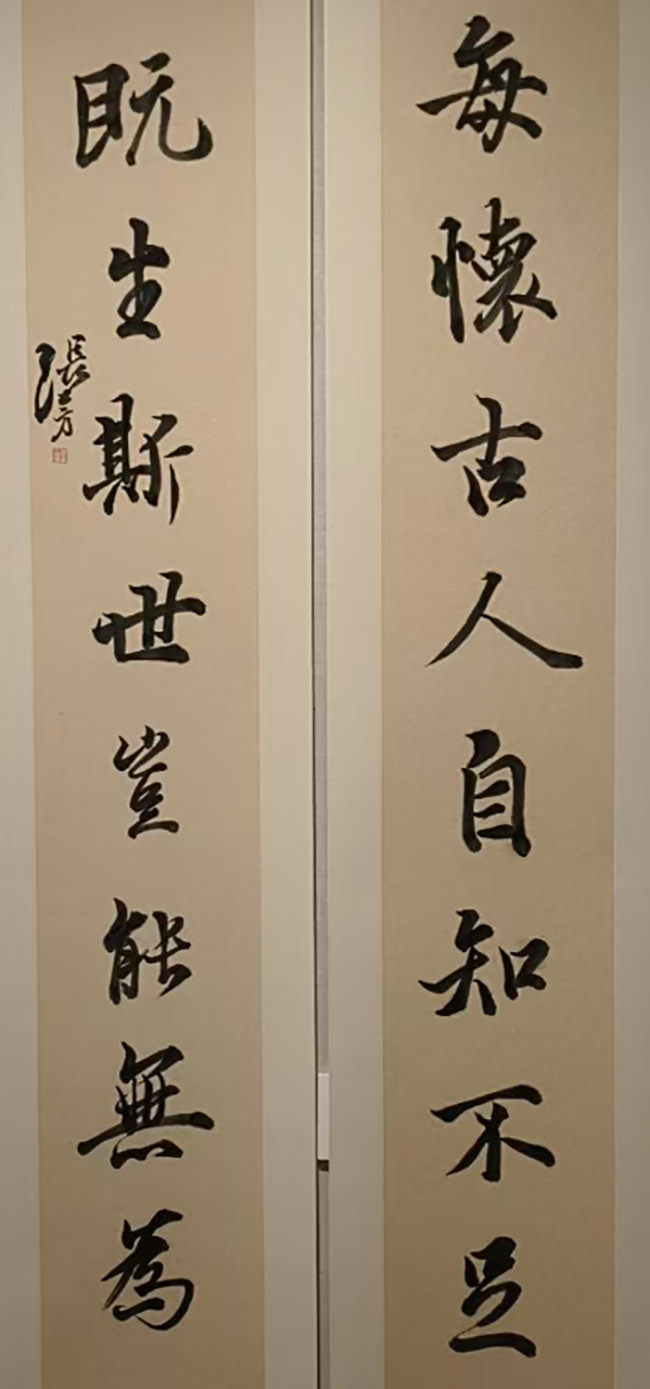 每懷古人自知不足
既生斯世豈能無為
張